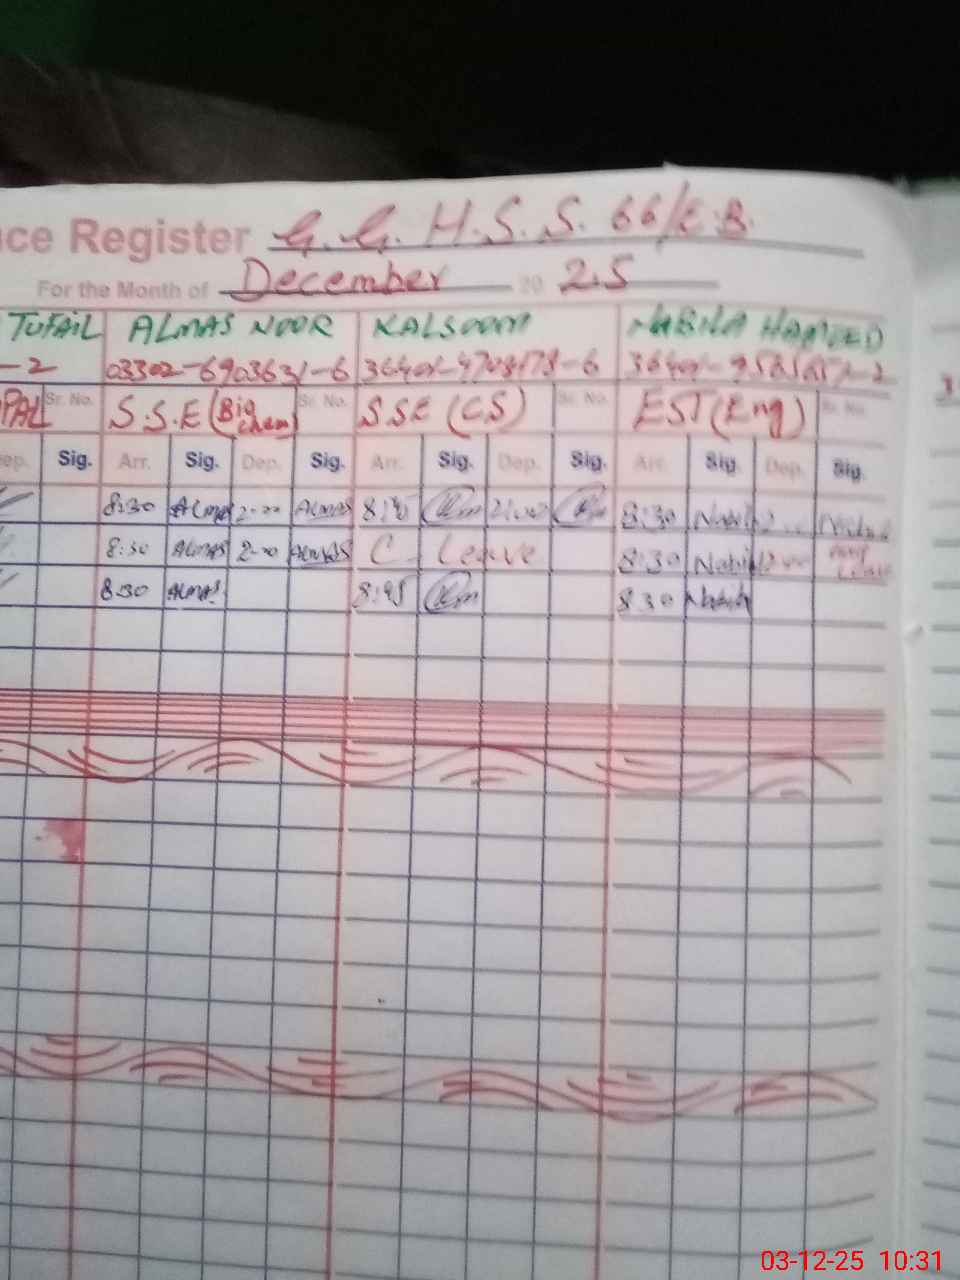 ce Register G.G.H.S.S. 66/E.B.
For the Month of December 20 25
TUFAIL ALMAS NOOR KALSOOM NABILA HAMEED
-2 03302-6903631-6
PAL Sr. No. S.S.E (Bio chem) Sr. No. SSE (CS) Sr. No. EST (Eng) Sr. No.
ep. Sig. Arr. Sig. Dep. Sig. Arr. Sig. Dep. Sig. Arr. Sig. Dep. Sig.
8:30 ALMAS 2-00 ALMAS 2:00 8:30 Nabila
8:30 ALMAS 2-00 ALMAS C - Leave 8:30 Nabila
8:30 ALMAS 8:45 8:30 Nabila
03-12-25 10:31